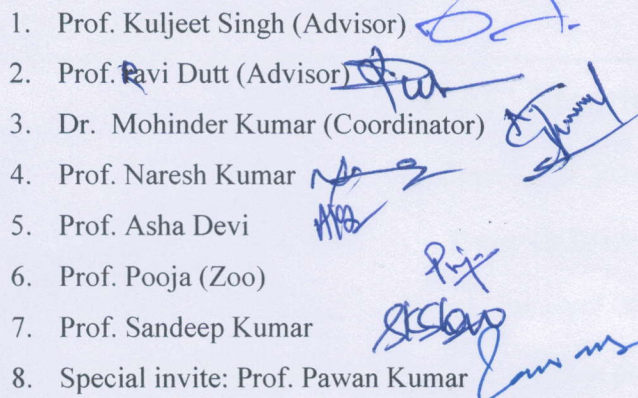 1. Prof. Kuljeet Singh (Advisor)
2. Prof. Ravi Dutt (Advisor)
3. Dr. Mohinder Kumar (Coordinator)
4. Prof. Naresh Kumar
5. Prof. Asha Devi
6. Prof. Pooja (Zoo)
7. Prof. Sandeep Kumar
8. Special invite: Prof. Pawan Kumar